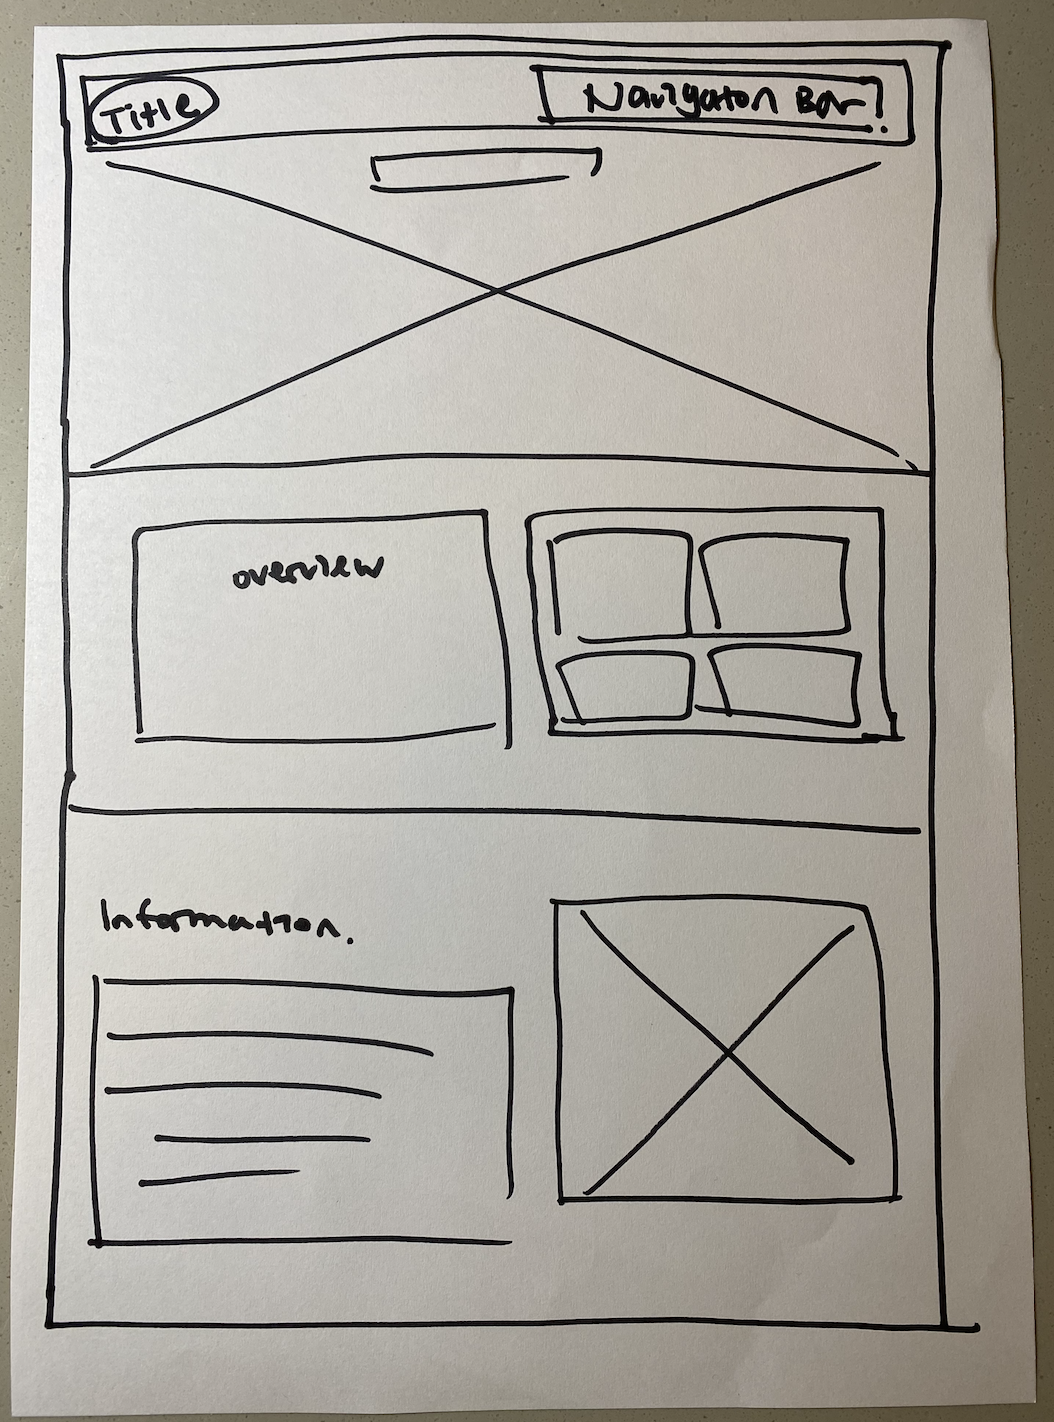 Title
Navigaton Bar
overview
Information.